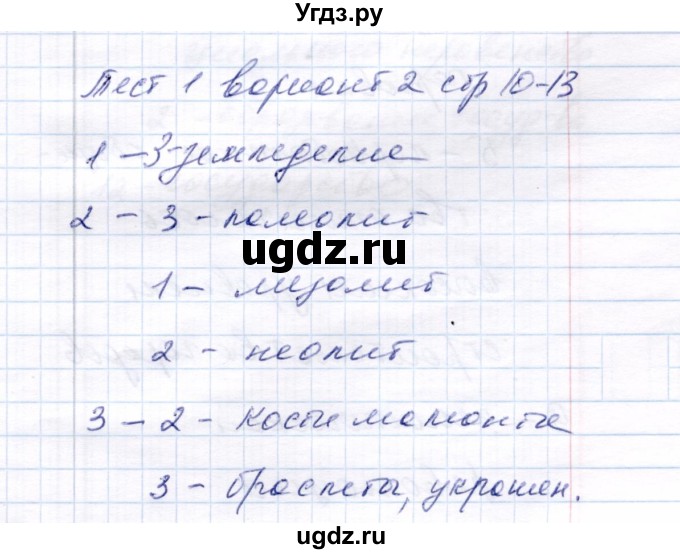 Угдз.ру
Тест 1 вариант 2 стр 10-13
1 - 3 - земледелие
2 - 3 - палеолит
ugdz.ru
1 - мизолит
2 - неолит
3 - 2 - кости мамонта
3 - браслеты, украшен.
ugdz.ru